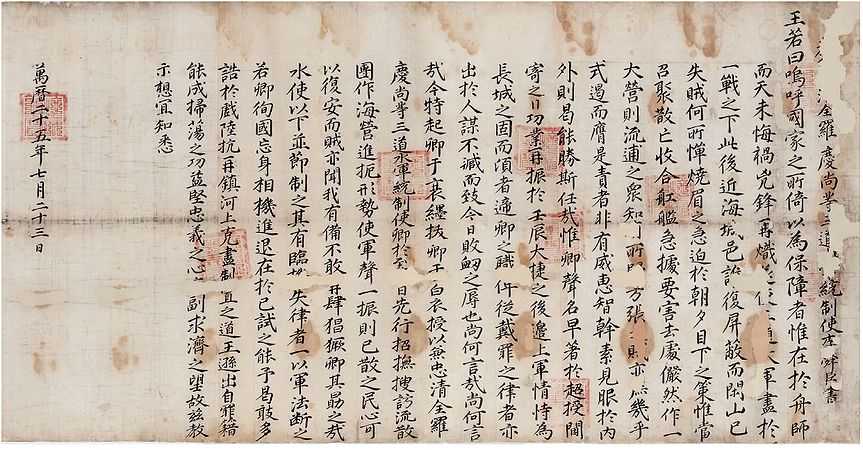 全羅慶尚等三道統制使李舜臣書
王若曰嗚呼國家之所倚以為保障者惟在於舟師
而天未悔禍兇鋒再熾軍盡於
一戰之下此後近海城邑誰復屏蔽而閑山已
失賊何所憚燒眉之急迫於朝夕目下之策惟當
召聚散亡收合舡艦急據要害去處儼然作一
大營則流逋之衆知所方張賊亦幾乎
式遏而膺是責者非有威惠智幹素見服於內
外則曷能勝斯任哉惟卿聲名早著於超授閫
寄之日功業再振於壬辰大捷之後邊上軍情恃為
長城之固而頃者遞卿之職俾從戴罪之律者亦
出於人謀不臧而致今日敗衄之辱也尚何言哉尚何言
哉今特起卿于衰絰拔卿于白衣授以兼忠清全羅
慶尚等三道水軍統制使卿於至日先行招撫搜訪流散
團作海營進扼形勢使軍聲一振則已散之民心可
以復安而賊亦聞我有備不敢再肆猖獗卿其勗之哉
水使以下並節制之其有臨機失律者一以軍法斷之
若卿徇國忘身相機進退在於已試之能予曷敢多
誥於戲陸抗再鎮河上克盡制置之道王遜出自罪籍
能成掃蕩之功益堅忠義之心副求濟之望故茲教
示想宜知悉
萬曆二十五年七月二十三日